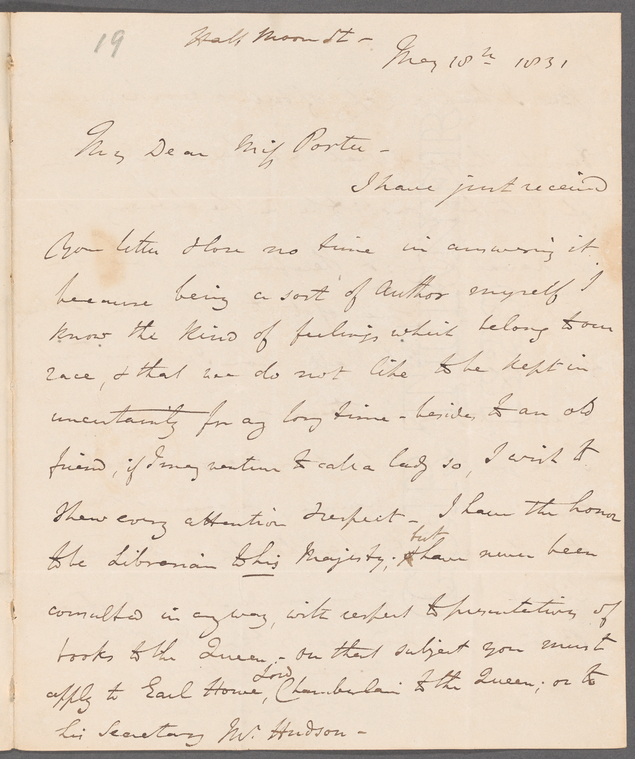 19
Half Moon St -
May 18th 1831
My Dear Miss Porter -
I have just receivd
your letter & lose no time in answering it
because being a sort of Author myself I
know the kind of feelings which belong to our
race, & that we do not like to be kept in
uncertainty for any long time - besides to an old
friend, if I may venture to call a lady so, I wish to
shew every attention & respect - I have the honor
to be Librarian to his Majesty; but I have never been
consulted in any way, with respect to presentations of
books to the Queen, - on that subject you must
apply to Earl Howe, Lord Chamberlain to the Queen; or to
his Secretary Mr. Hudson -